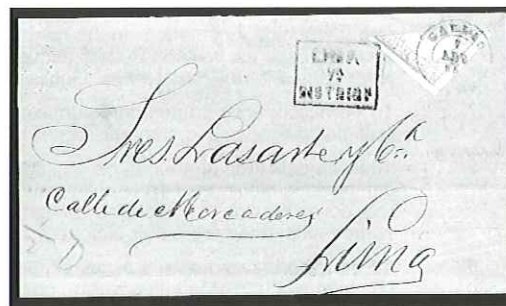 LIMA
1ª
DISTRIBN
CALLAO
7
Sres. Lasarte y Cia
Calle de Mercaderes
Lima